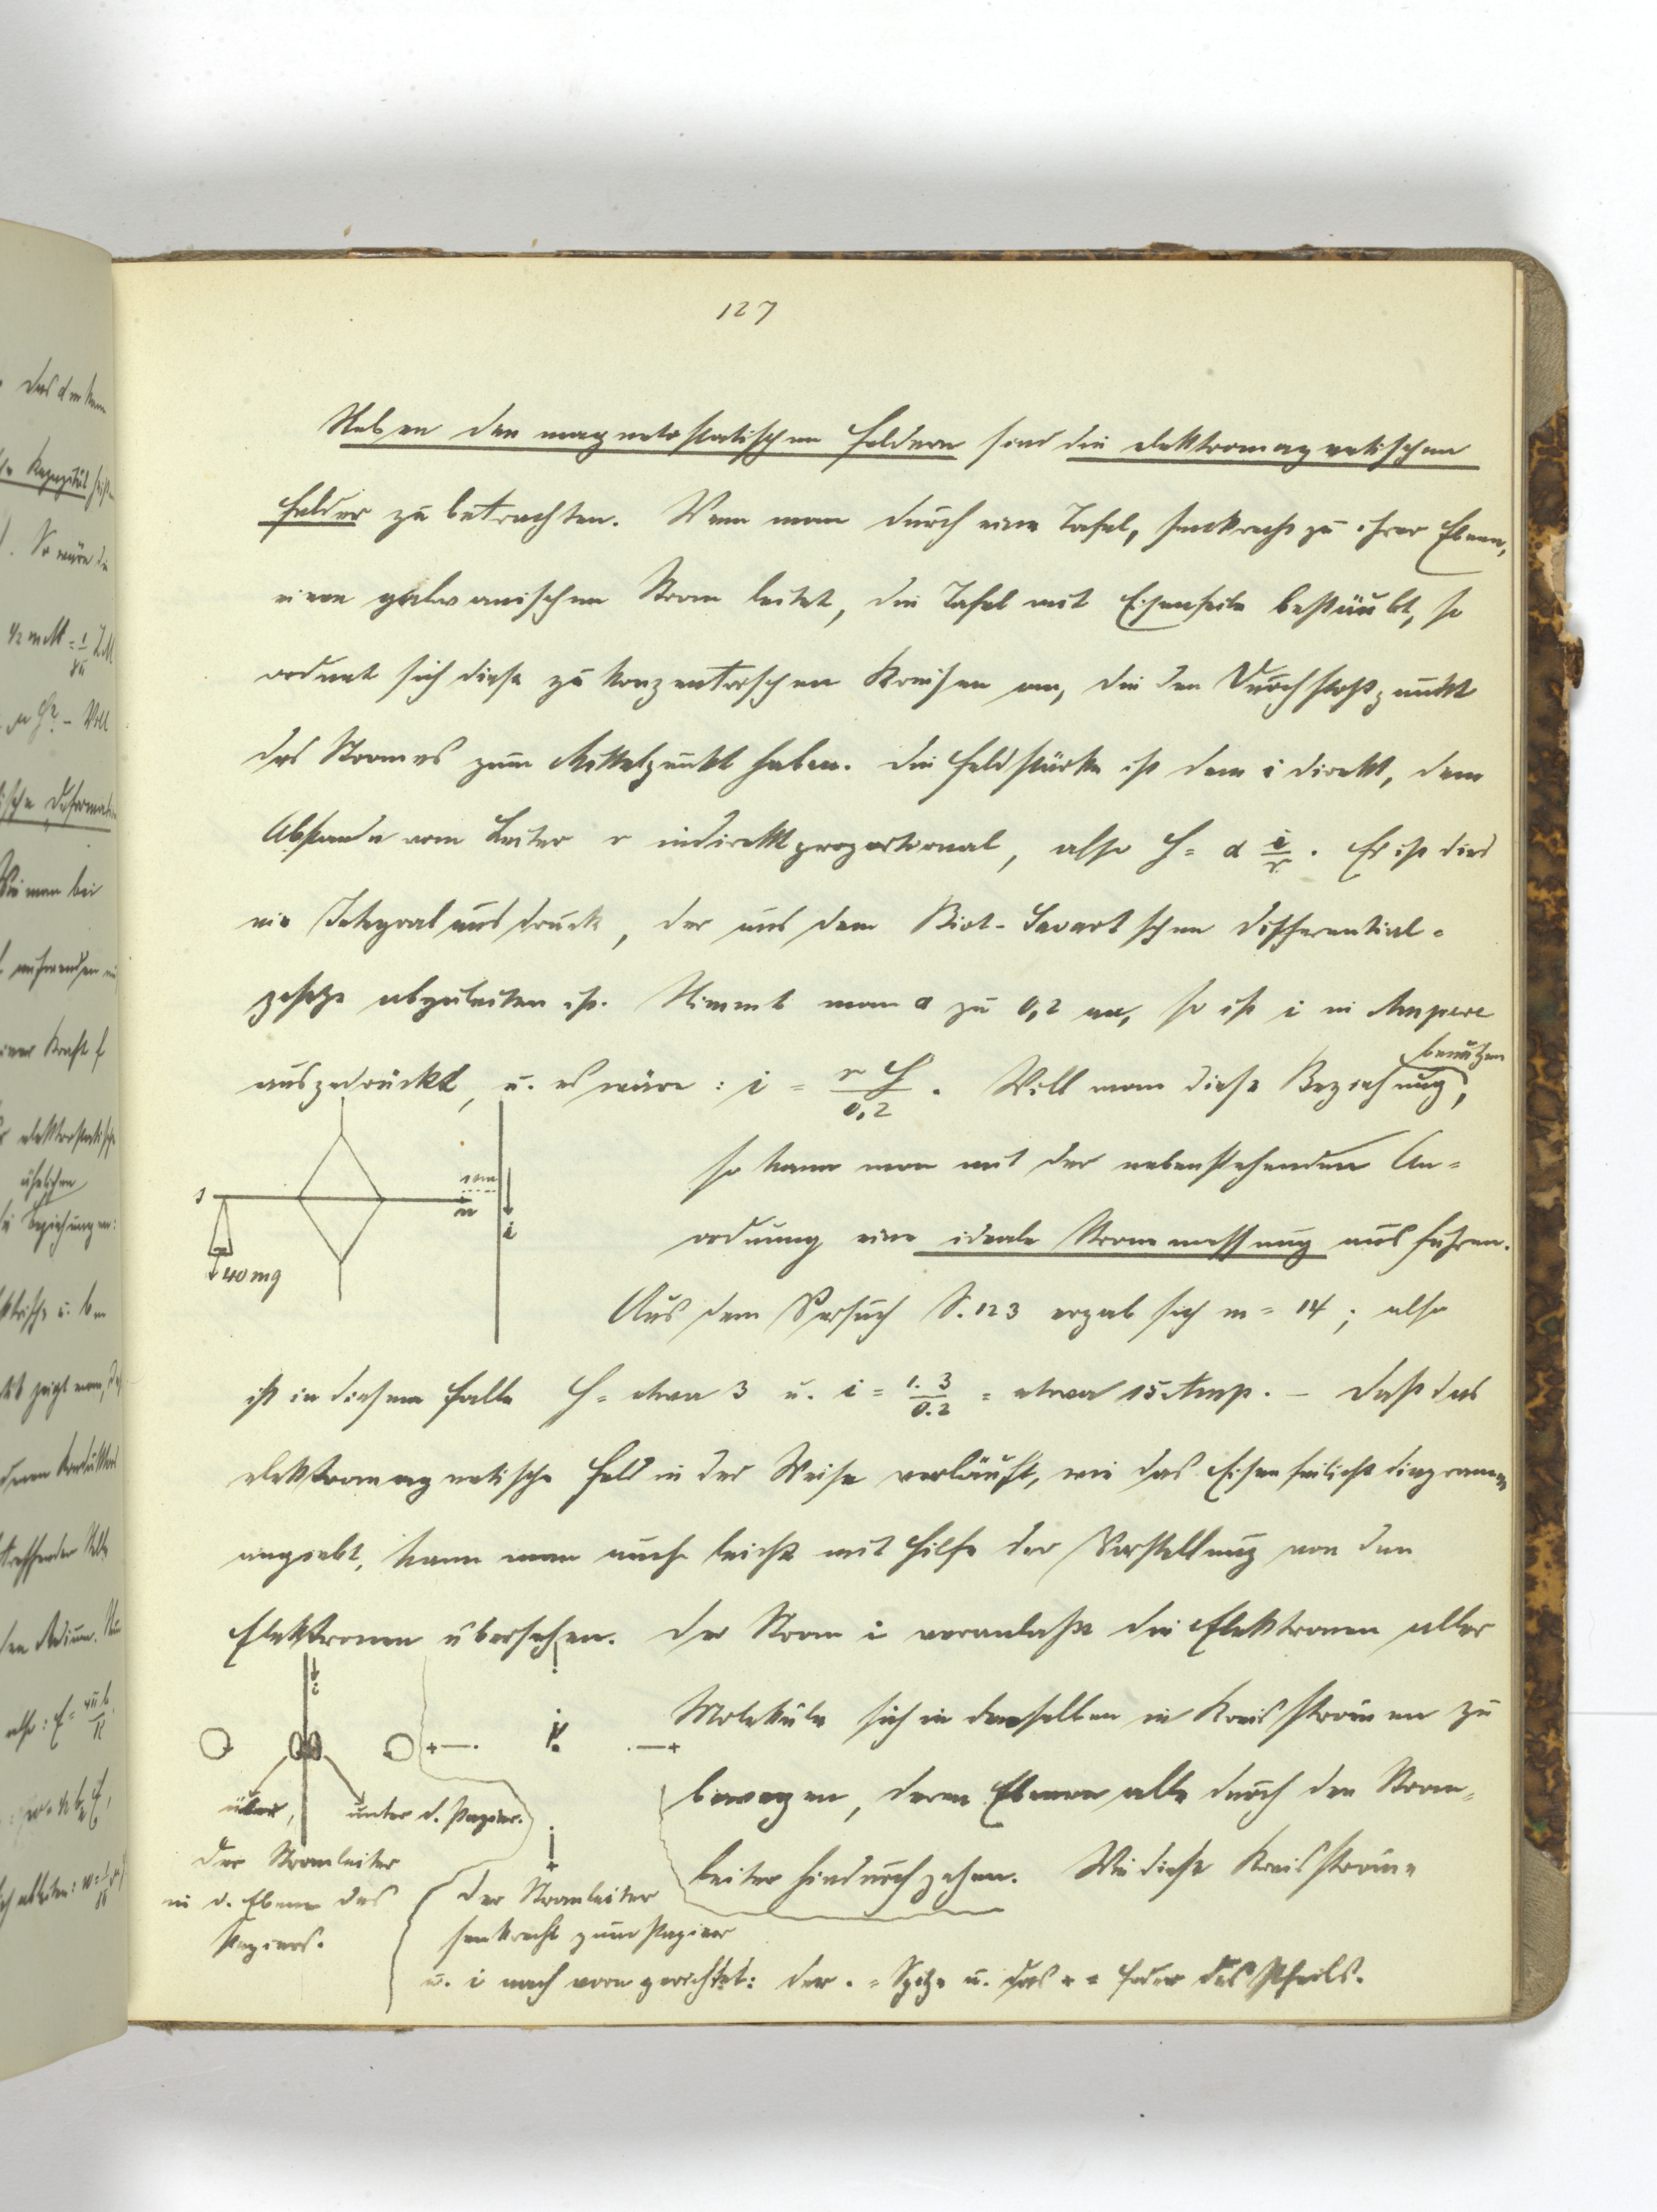 127
Neben den magnetostatischen Feldern sind die elektromagnetischen
Felder zu betrachten. Wenn man durch eine Tafel, senkrecht zu ihrer Ebene,
einen galvanischen Strom leitet, die Tafel mit Eisenfeile bestäubt, so
ordnet sich diese zu konzentrischen Kreisen an, die den Durchstoßpunkt
des Stromes zum Mittelpunkt haben. Die Feldstärke ist dem i direkt, dem
Abstande vom Leiter r indirekt proportional, also H = a i/r. Es ist dies
ein Integralausdruck, der aus dem Biot-Savartschen Differential-
gesetze abzuleiten ist. Nimmt man a zu 0,2 an, so ist i in Ampere
ausgedrückt, u. es wäre: i = r H / 0,2. Will man diese Beziehung benützen,
so kann man mit der nebenstehenden An-
ordnung eine ideale Strommessung ausführen.
s
1 cm
n
i
40 mg
Aus dem Versuch S. 123 ergab sich m = 14; also
ist in diesem Falle H = etwa 3 u. i = 1.3/0.2 = etwa 15 Amp. – Daß das
elektromagnetische Feld in der Weise verläuft, wie das Eisenfeilichtdiagramm
angiebt, kann man auch leicht mit Hilfe der Vorstellung von den
Elektronen übersehen. Der Strom i veranlaßt die Elektronen aller
Moleküle sich in denselben in Kreisströmen zu
bewegen, deren Ebenen alle durch den Strom-
leiter hindurchgehen. Wie diese Kreisströme
i
über, unter d. Papier.
Der Stromleiter
in d. Ebene des
Papiers.
Der Stromleiter
senkrecht zum Papier
u. i nach vorn gerichtet: der . = Spitze u. das + = Feder des Pfeils.